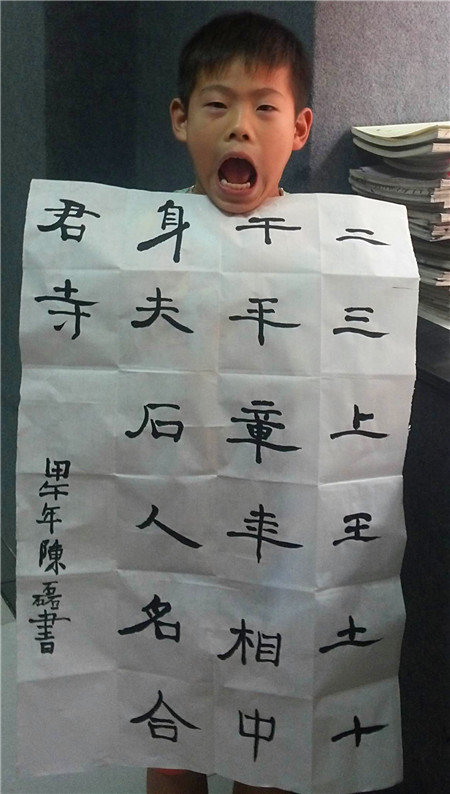 二三上王土十
午平章相中
身夫石人名合
君寺
甲午年陳磊書